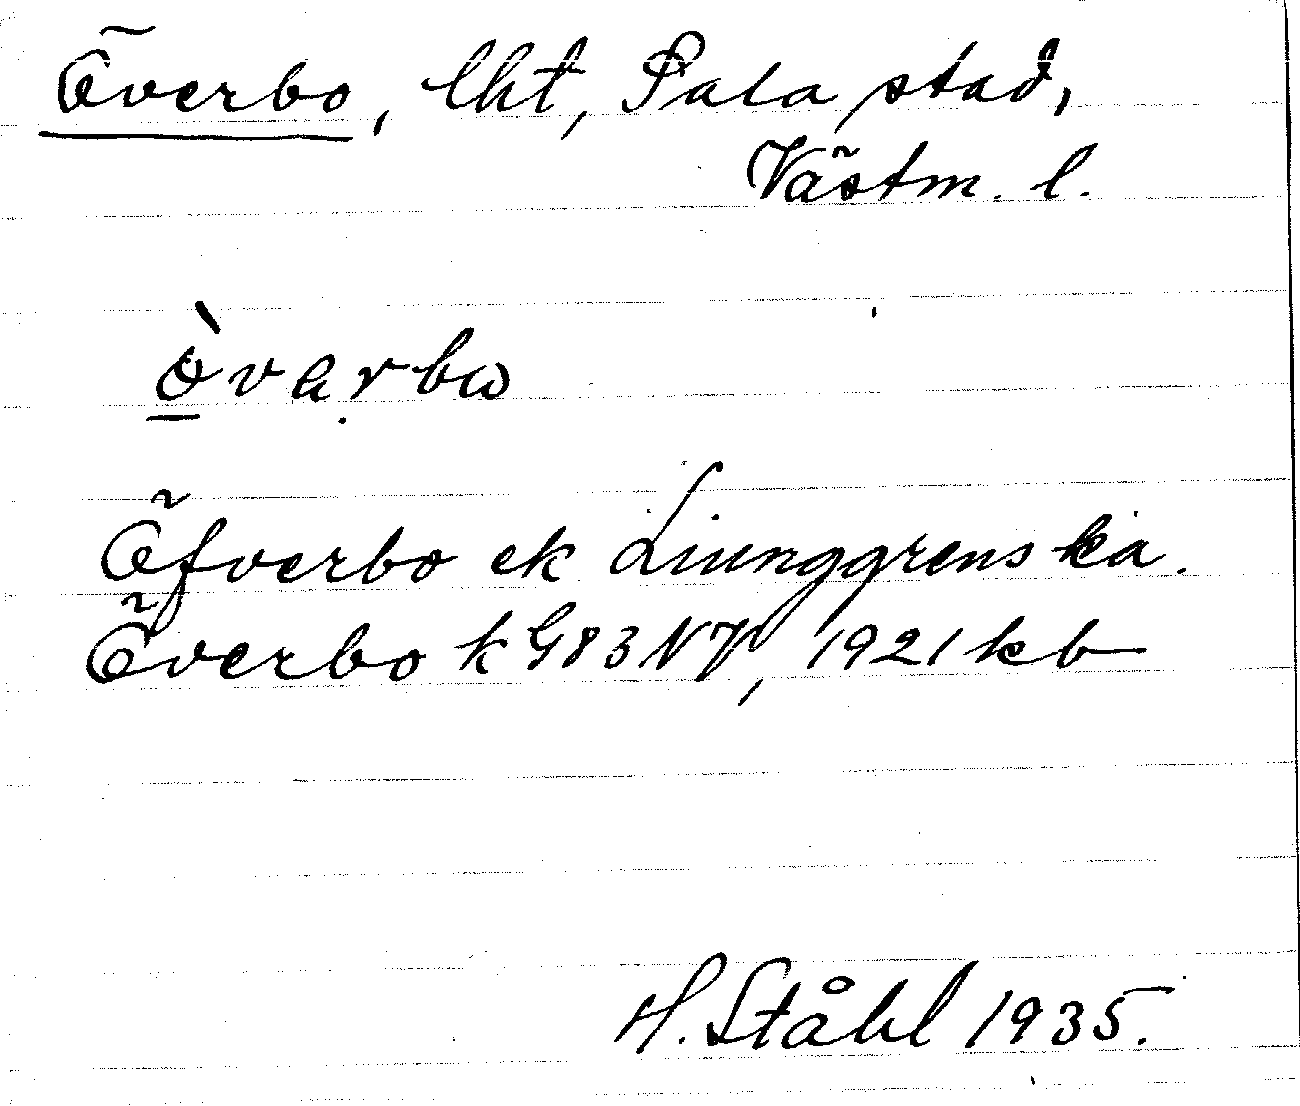 Överbo, lht, Sala stad,
Västm. l.
Öfverbo ek Ljunggrenska.
Överbo k G83NV, 1921 kb
H. Ståhl 1935.